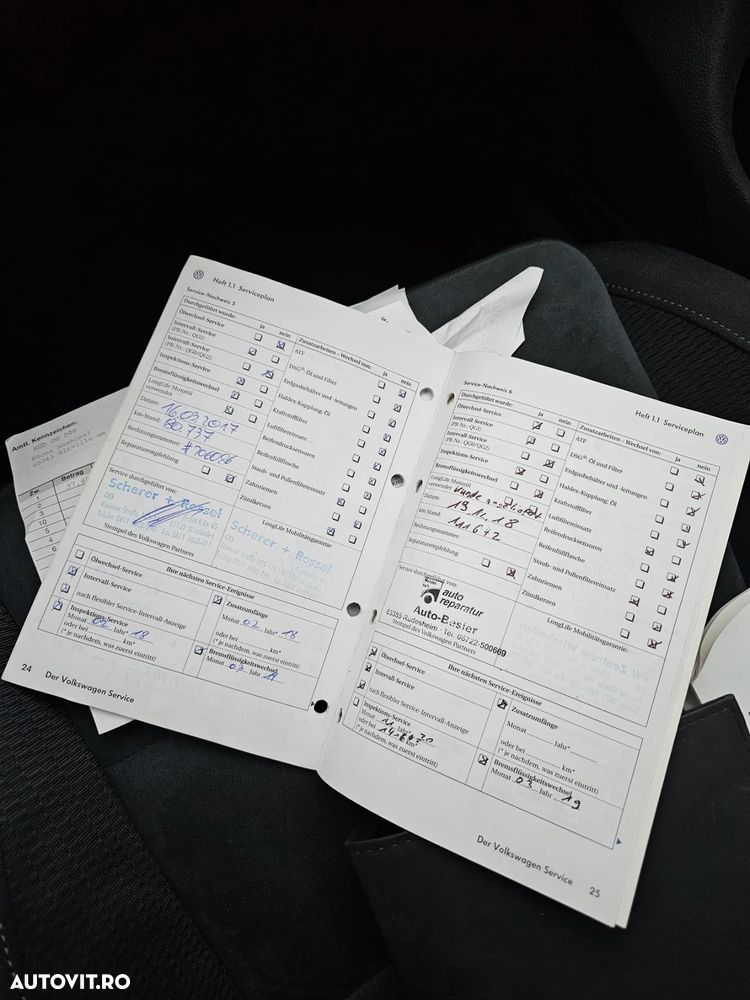 Heft 1.1 Serviceplan
Service-Nachweis 5
Durchgeführt wurde: ja nein
Ölwechsel-Service
(PR-Nr.: QG1)
Intervall-Service
(PR-Nr.: QG0/QG2)
Inspektions-Service
Bremsflüssigkeitswechsel
LongLife Motoröl
verwendet
Datum: 16.03.2017
km-Stand: 80737
Rechnungsnummer:
Reparaturempfehlung
Zusatzarbeiten – Wechsel von: ja nein
ATF
DSG®: Öl und Filter
Erdgasbehälter und -leitungen
Haldex-Kupplung: Öl
Kraftstofffilter
Luftfiltereinsatz
Reifendrucksensoren
Reifenfüllflasche
Staub- und Pollenfiltereinsatz
Zahnriemen
Zündkerzen
LongLife Mobilitätsgarantie:
Service durchgeführt von:
Scherer + Rossel
Scherer + Rossel
Stempel des Volkswagen Partners
Ihre nächsten Service-Ereignisse
Ölwechsel-Service
Intervall-Service
nach flexibler Service-Intervall-Anzeige
Inspektions-Service
Monat 02 Jahr* 18
oder bei km*
(* je nachdem, was zuerst eintritt)
Zusatzumfänge
Monat 02 Jahr* 18
oder bei km*
(* je nachdem, was zuerst eintritt)
Bremsflüssigkeitswechsel
Monat 03 Jahr
24 Der Volkswagen Service
Amtl. Kennzeichen:
Betrag
Heft 1.1 Serviceplan
Service-Nachweis 6
Durchgeführt wurde: ja nein
Ölwechsel-Service
(PR-Nr.: QG1)
Intervall-Service
(PR-Nr.: QG0/QG2)
Inspektions-Service
Bremsflüssigkeitswechsel
LongLife Motoröl
verwendet wurde
Datum: 19.11.18
km-Stand: 111642
Rechnungsnummer:
Reparaturempfehlung
Zusatzarbeiten – Wechsel von: ja nein
ATF
DSG®: Öl und Filter
Erdgasbehälter und -leitungen
Haldex-Kupplung: Öl
Kraftstofffilter
Luftfiltereinsatz
Reifendrucksensoren
Reifenfüllflasche
Staub- und Pollenfiltereinsatz
Zahnriemen
Zündkerzen
LongLife Mobilitätsgarantie:
Service durchgeführt von:
auto
reparatur
Auto-Basier
65385 Rüdesheim · Tel. 06722-500669
Stempel des Volkswagen Partners
Ihre nächsten Service-Ereignisse
Ölwechsel-Service
Intervall-Service
nach flexibler Service-Intervall-Anzeige
Inspektions-Service
Monat 11 Jahr* 20
oder bei km*
(* je nachdem, was zuerst eintritt)
Zusatzumfänge
Monat Jahr*
oder bei km*
(* je nachdem, was zuerst eintritt)
Bremsflüssigkeitswechsel
Monat 03 Jahr 19
Der Volkswagen Service 25
AUTOVIT.RO